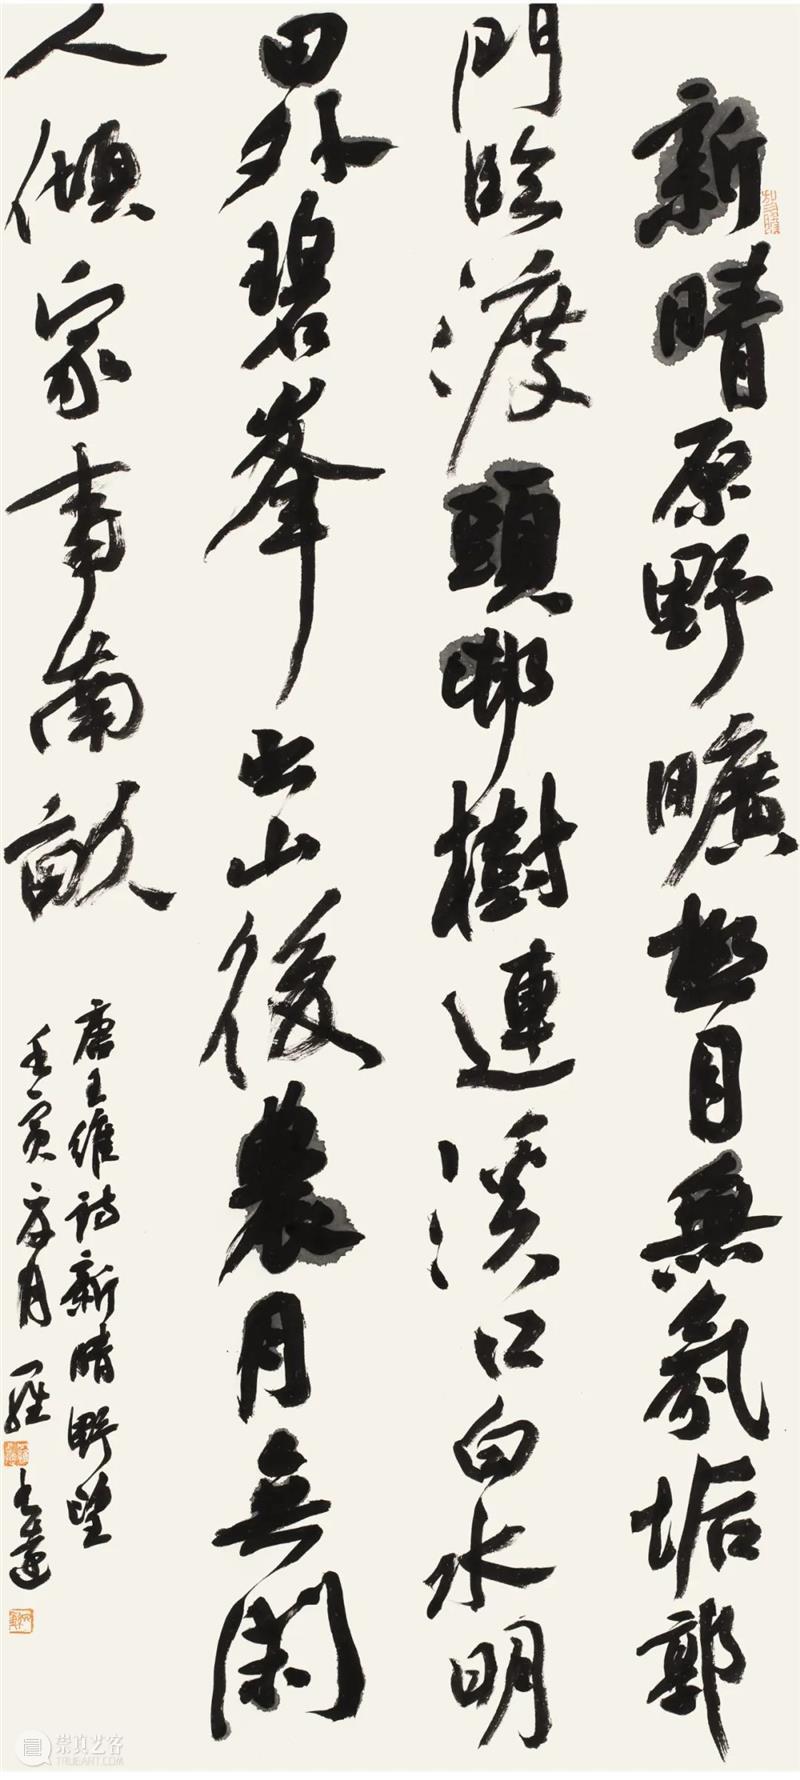 新晴原野曠極目無氛垢郭
門臨渡頭邨樹連溪口白水明
田外碧峯出山後農月無閑
人傾家事南畝
唐王維詩新晴野望
壬寅月羅
崇真艺客
TRUEART.COM